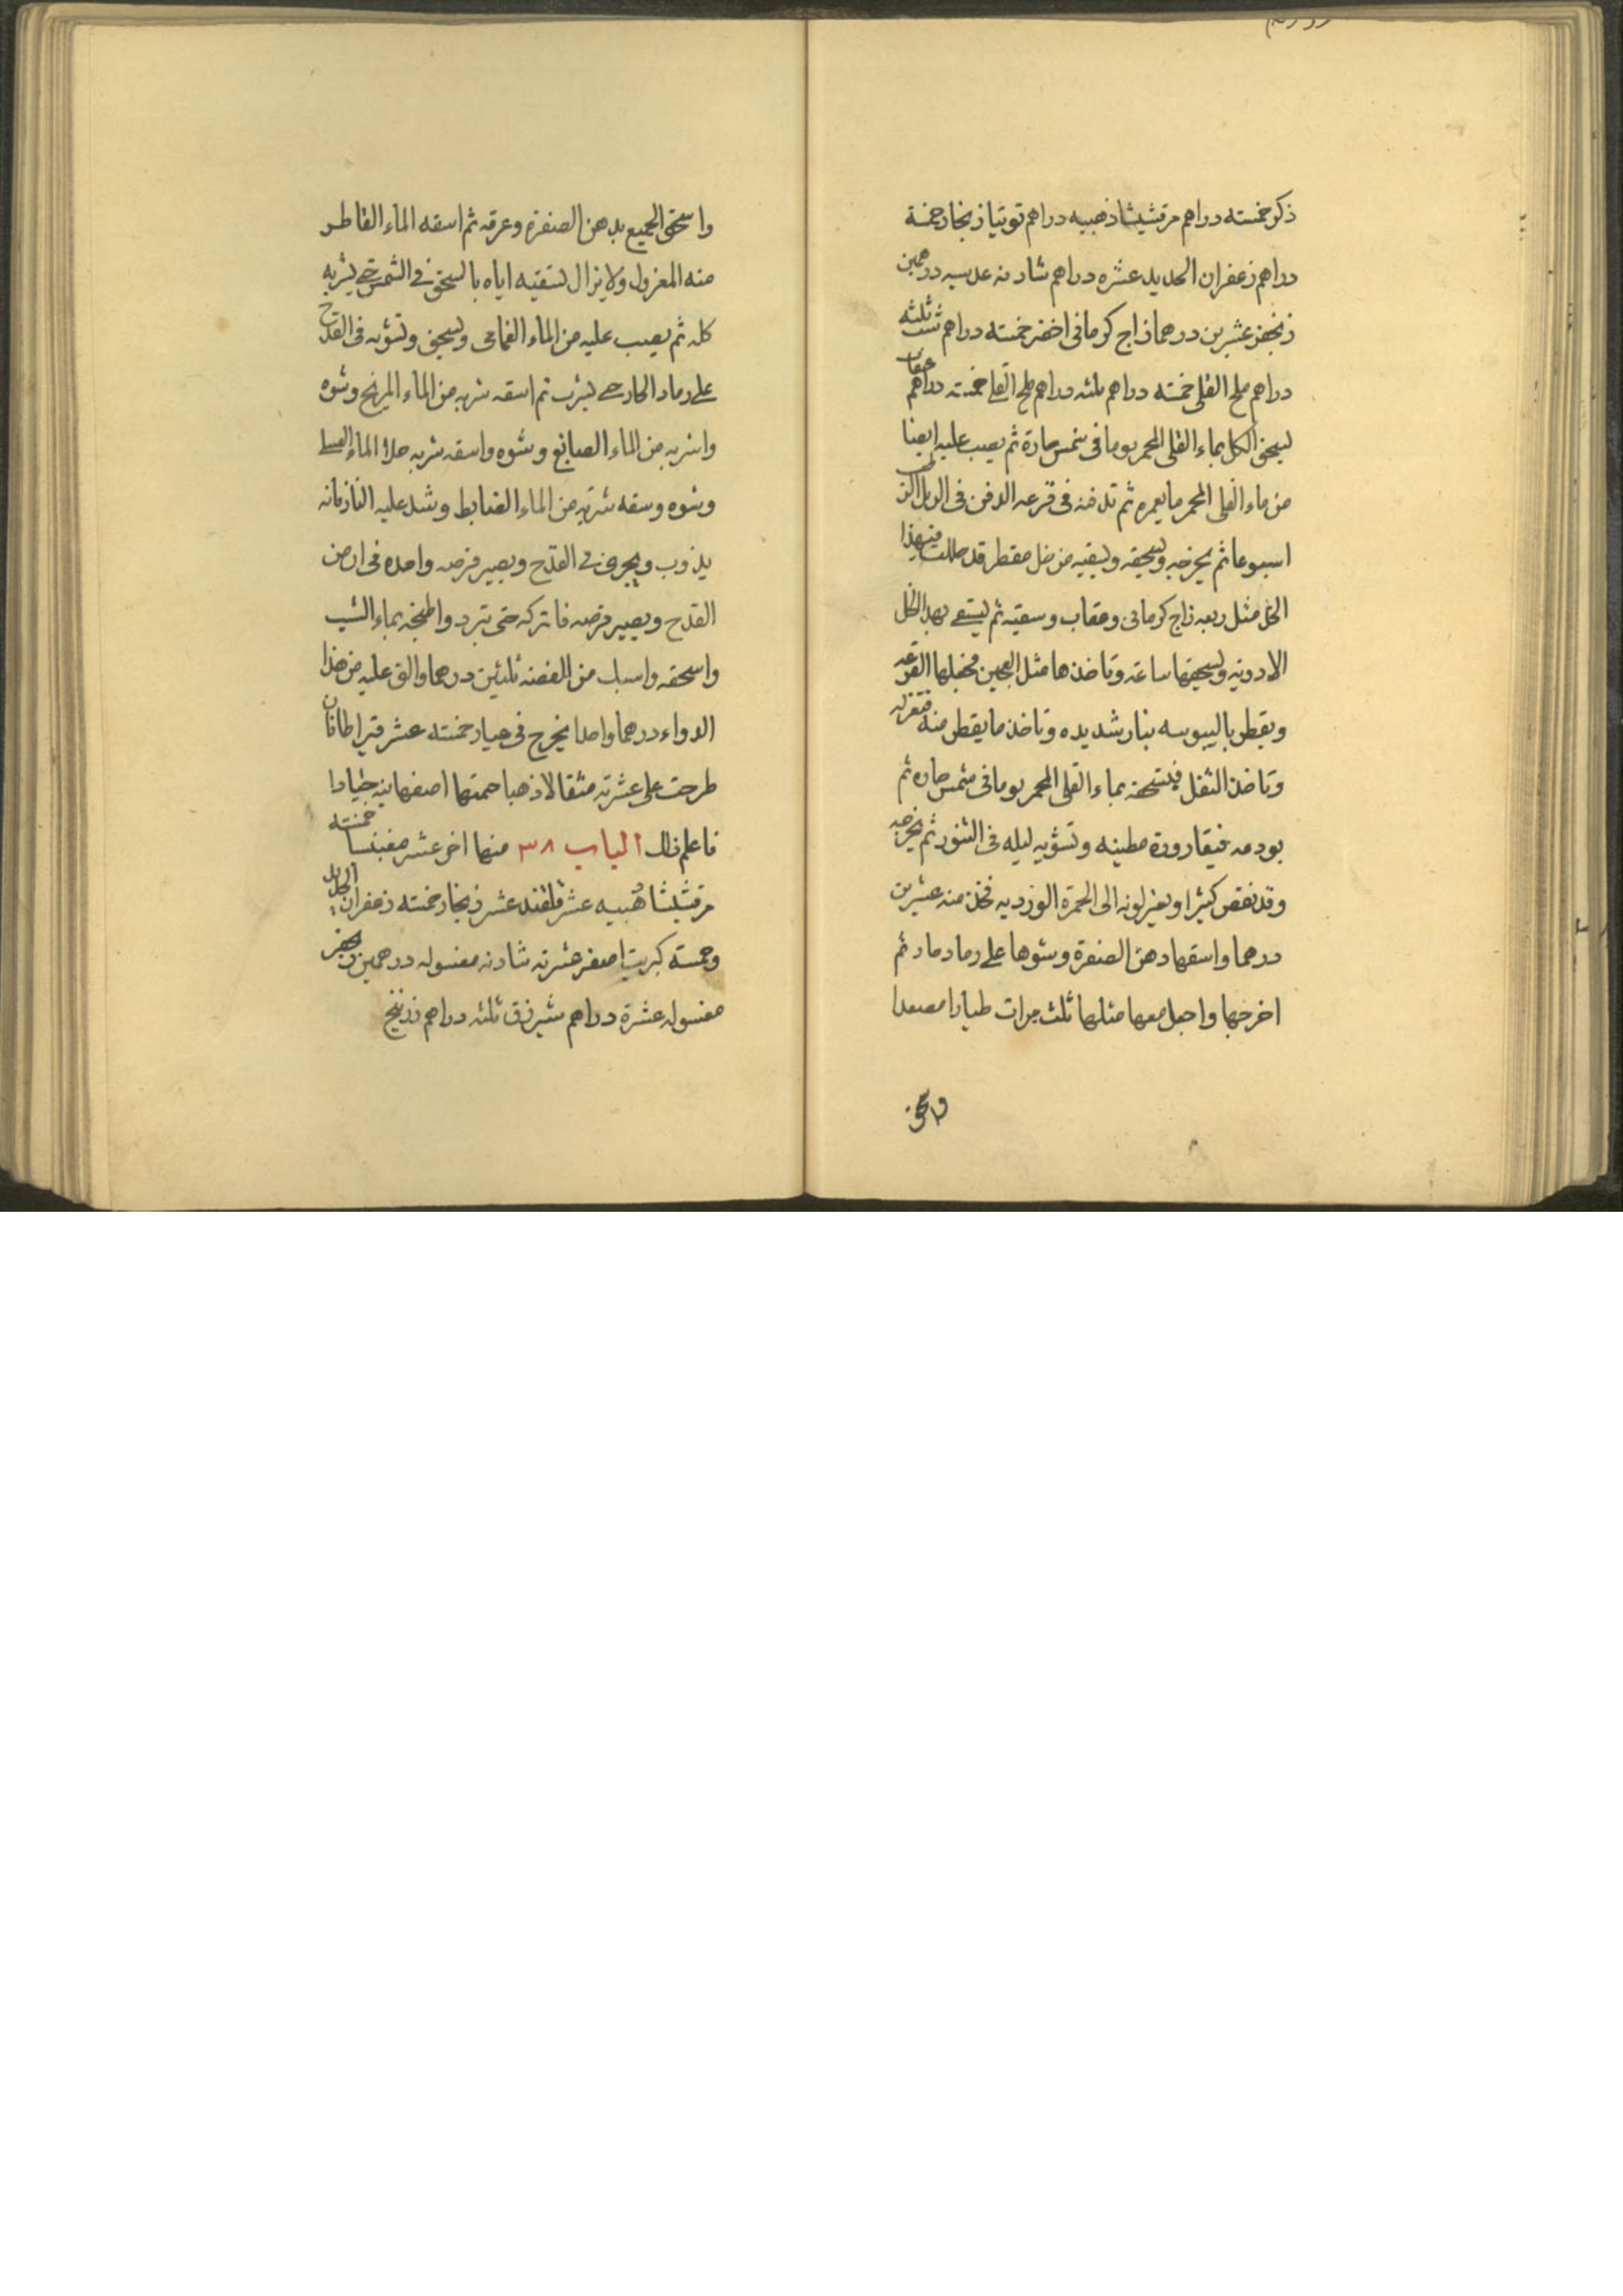 ذكر خمسته دراهم مرقشيثا ذهبيه دراهم توتيا زنجار خمسة
دراهم زعفران الحديد عشره دراهم شادنه عدسيه درهمين
زنجفر عشرين درهما زاج كرمانى اخضر خمسته دراهم شب ثلثه
دراهم ملح القلى خمسته دراهم ثلثه دراهم ملح القلى خمسته دراهم عقاب
ليسحق الكل بماء القلى المحمر يوما فى شمس حارة ثم يصب عليه ايضا
من ماء القلى المحمر ما يغمره ثم تدفنه فى قرعه الدفن فى الزبل الرطب
اسبوعا ثم يخرجه ويسحقه ويسقيه من خل مقطر قد حللت فيه هذا
الخل مثل ربعه زاج كرمانى وعقاب وسقيته ثم ليستقى بهذا الخل
الادويه ويسحقها ساعة وتاخذها مثل العجين فتجعلها القرعه
ويقطر باليبوسه بنار شديده وتاخذ ما يقطر منه فتعزله
وتاخذ الثفل فيسحقه بماء القلى المحمر يوما فى شمس حاره ثم
يودعه فى قارورة مطينه وتشويه ليله فى التنور ثم يخرجه
وقد نقص كثيرا ويغير لونه الى الحمرة الورديه فخذ منه عشرين
درهما واسقها دهن الصفرة وشوها على رماد حار ثم
اخرجها واجعل معها مثلها ثلث مرات طيارا مصعدا
واسحق
واسحق الجميع بدهن الصفرة وعرقه ثم اسقه الماء القاطر
منه المعزول ولا يزال لتسقيه اياه بالسحق فى الشمس حتى يشربه
كله ثم يصب عليه من الماء الغمامى ويسحق وتشويه فى القدح
على رماد الحار حتى يشرب ثم اسقه شربه من الماء المريخ وشوه
واشربه من الماء الصابغ وشوه واسقه شربه حلا الماء
وشوه وسقه شربة من الماء الضابط وشد عليه النار فانه
يذوب ويجرى فى القدح ويصير قرصه واحده فى ارض
القدح ويصير قرصه فاتركه حتى تبرد واطبخه بماء الشب
واسحقه واسبك من الفضه ثلثين درهما والق عليه من هذا
الدواء درهما واحدا يخرج فى عيار خمسته عشر قيراطا فان
طرحت على عشرته مثقالا ذهبا حمتها اصفهانيه جيادا
فاعلم ذلك الباب ٣٨ منها اخر عشر مغنيسا خمسته
مرقشيثا ذهبيه عشر قلقند عشر زنجار خمسته زعفران الحديد
وخمسته كبريت اصفر عشرته شادنه مغسوله درهمين زنجفر
مغسوله عشرة دراهم شيرزق ثلثه دراهم زرنيخ